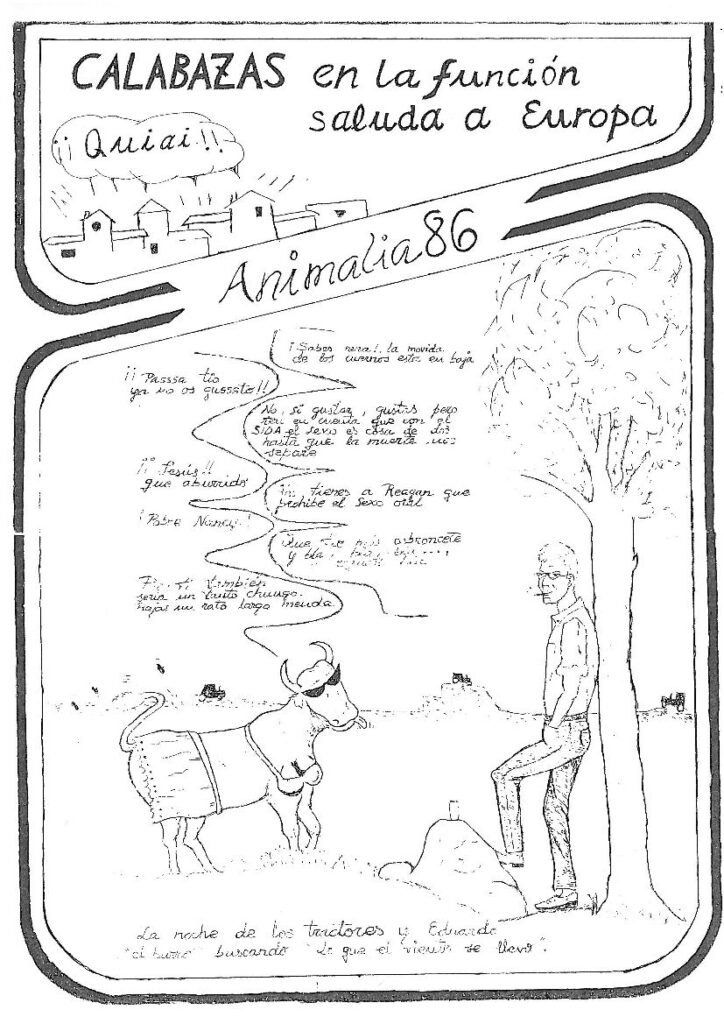 CALABAZAS en la función
saluda a Europa
¡¡ Quiai !!
Animalia 86
¡Sabes nena!, la movida
de los cuernos esta en baja
¡¡ Passsa tio
ya no os gussata!!
No, si gustar, gustas pero
ten en cuenta que con el
SIDA el sexo es cosa de dos
hasta que la muerte nos
separe
¡¡ Jesús!!
que aburrido
tienes a Reagan que
prohibe el sexo oral
¡Pobre Nancy!
más
y bla, bla, bla ...,
ti también
seria un tanto chungo.
un rato largo menda
La noche de los tractores y Eduardo
"el burro" buscando "Lo que el viento se llevó".